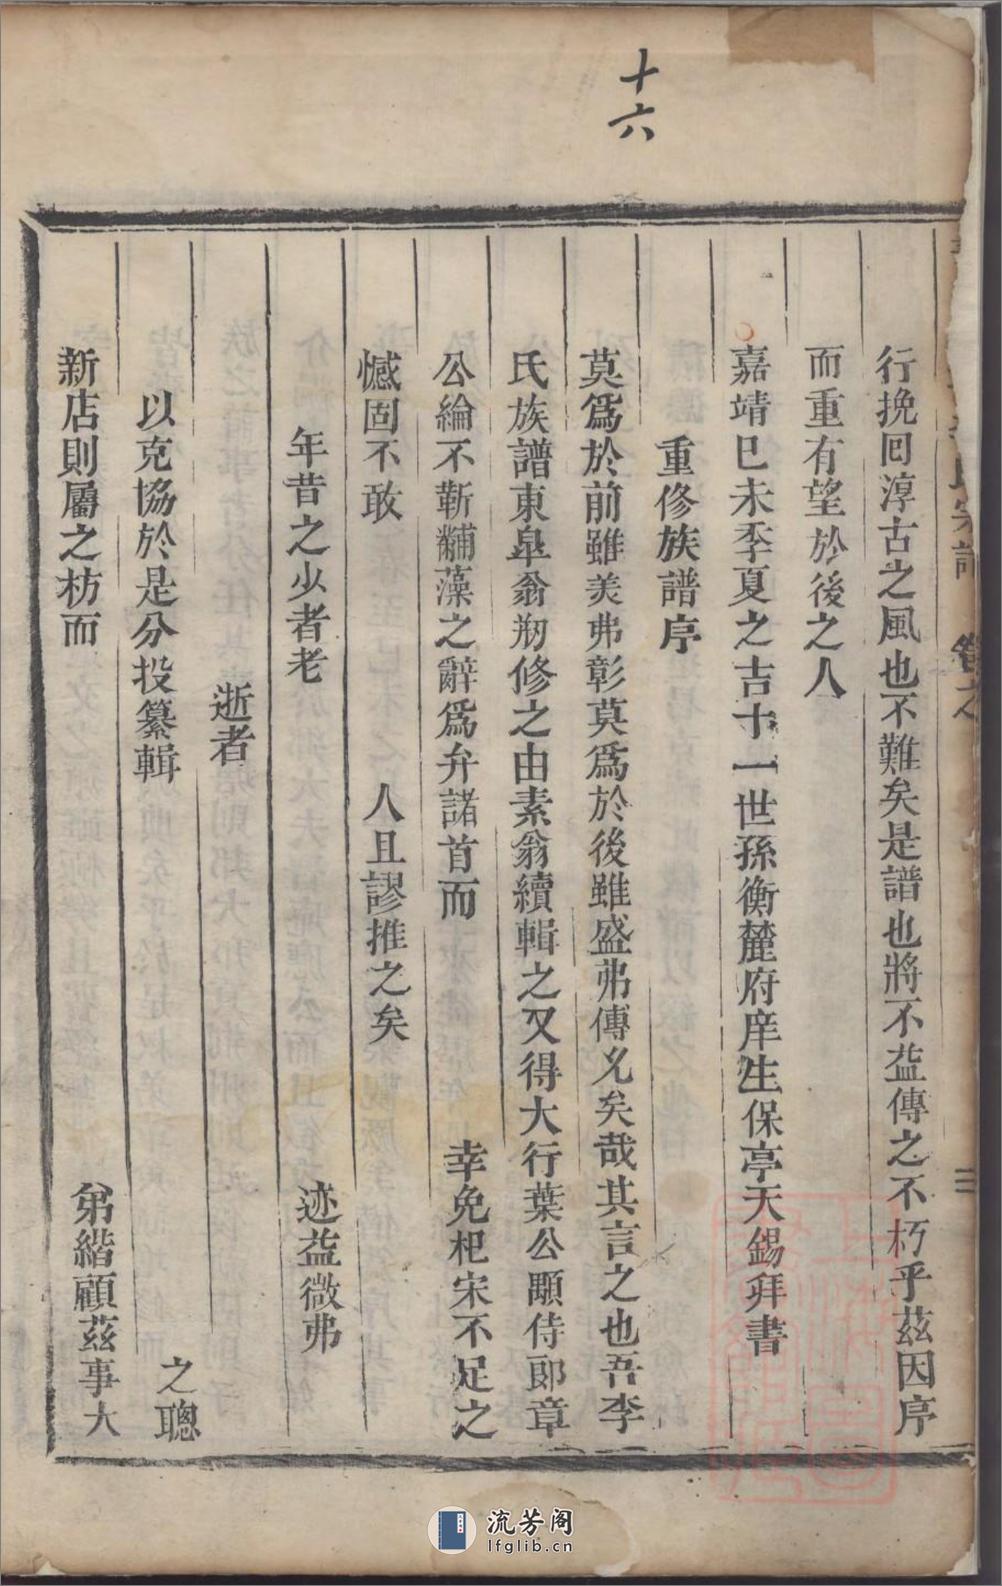 十六
行挽回淳古之風也不難矣是譜也將不益傳之不朽乎茲因序
而重有望於後之人
嘉靖巳未季夏之吉十一世孫衡麓府庠生保亭天錫拜書
重修族譜序
莫爲於前雖美弗彰莫爲於後雖盛弗傳允矣哉其言之也吾李
氏族譜東臯翁刱修之由素翁續輯之又得大行葉公顒侍郎章
公綸不靳黼藻之辭爲弁諸首而 幸免杞宋不足之
憾固不敢 人且謬推之矣
年昔之少者老 迹益微弗
逝者
以克協於是分投纂輯 之聰
新店則屬之枋而 弟緒顧茲事大
氏宗譜 卷之 二
流芳阁
lfglib.cn